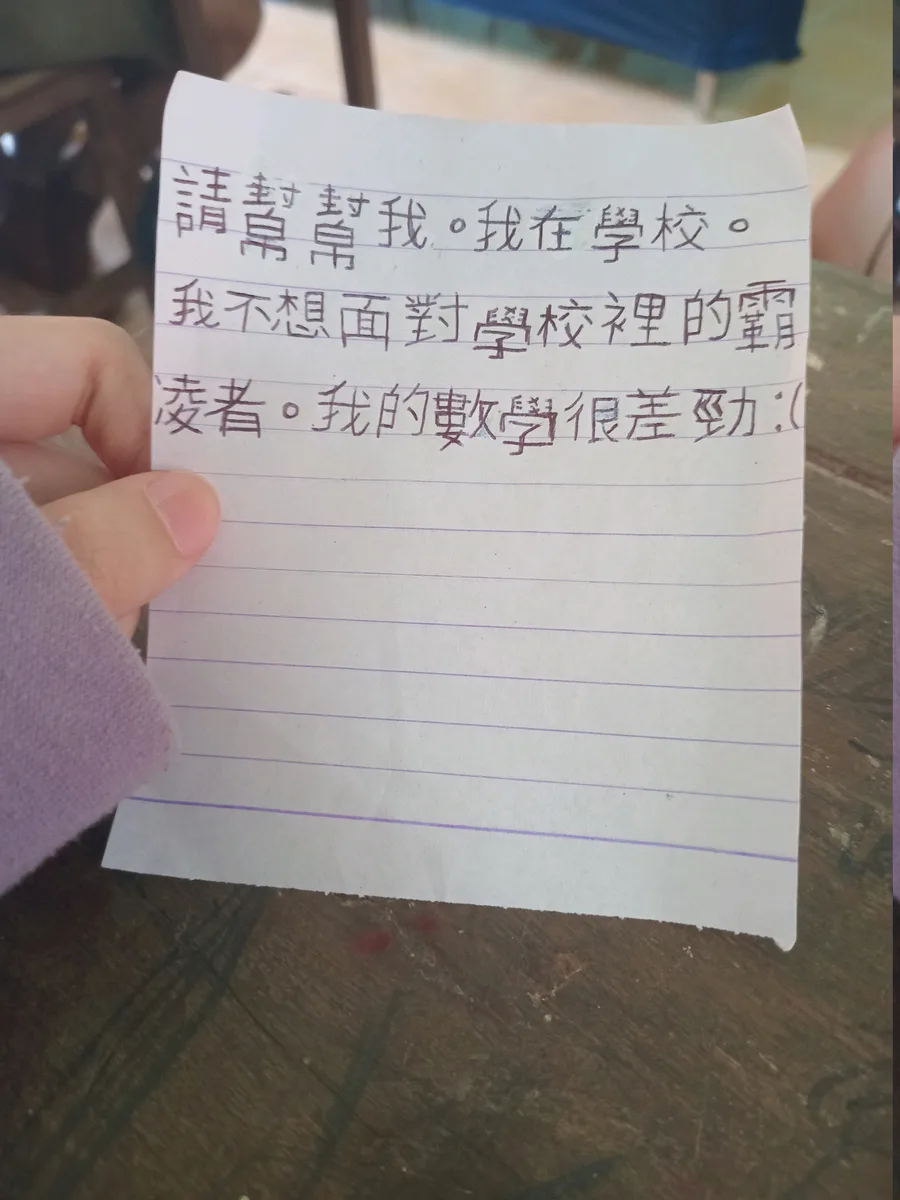 請幫幫我。我在學校。
我不想面對學校裡的霸
凌者。我的數學很差勁:(